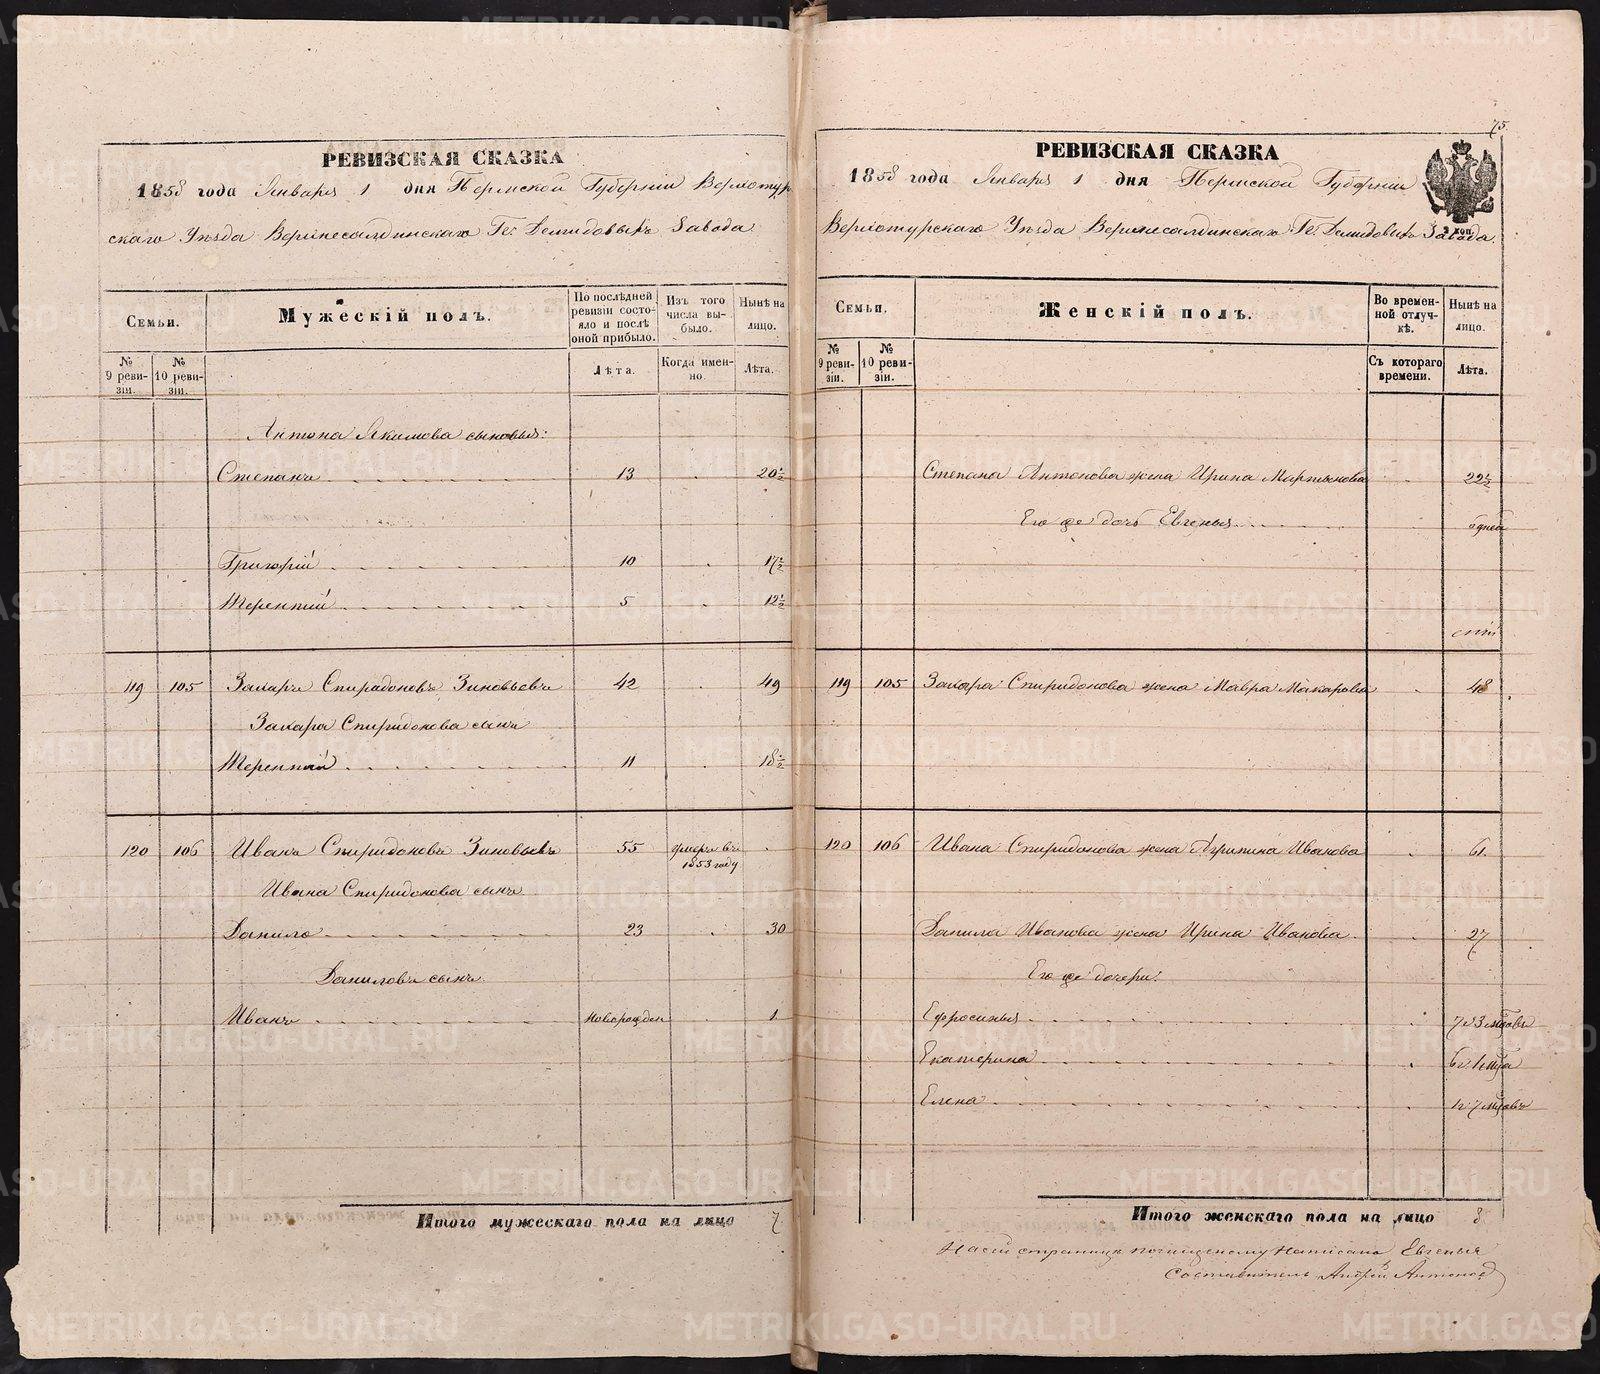 РЕВИЗСКАЯ СКАЗКА
1858 года Января 1 дня Пермской Губернiи Верхотур
скаго Уѣзда Верхнесалдинскаго Гг. Демидовыхъ Завода
Семьи.
Мужескiй полъ.
По послѣдней ревизiи состояло и послѣ оной прибыло.
Изъ того числа выбыло.
Нынѣ на лицо.
№ 9 ревизiи.
№ 10 ревизiи.
Лѣта.
Когда именно.
Лѣта.
Антона Якимова сыновья:
Степанъ 13 20½
Григорiй 10 17½
Терентiй 5 12½
119 105 Захаръ Спиридоновъ Зиновьевъ 42 49
Захара Спиридонова сынъ
Терентiй 11 18½
120 106 Иванъ Спиридоновъ Зиновьевъ 55 умеръ въ 1853 году
Ивана Спиридонова сынъ
Данило 23 30
Даниловъ сынъ
Иванъ новорожден 1
Итого мужескаго пола на лицо 7
75
РЕВИЗСКАЯ СКАЗКА
1858 года Января 1 дня Пермской Губернiи
Верхотурскаго Уѣзда Верхнесалдинскаго Гг. Демидовыхъ Завода.
Семьи.
Женскiй полъ.
Во временной отлучкѣ.
Нынѣ на лицо.
№ 9 ревизiи.
№ 10 ревизiи.
Съ котораго времени.
Лѣта.
Степана Антонова жена Ирина Мартынова 22½
Его же дочь Евгенья дней
119 105 Захара Спиридонова жена Мавра Макарова 48
120 106 Ивана Спиридонова жена Агрипина Иванова 61.
Данила Иванова жена Ирина Иванова 27
Его же дочери:
Ефросинья 7 и 3 мцовъ
Екатерина 6 и 1 мца
Елена 1 и 7 мцовъ
Итого женскаго пола на лицо 8
На сей страницѣ почищеному написано Евгенья
Составитель Андрей Антонов
METRIKI.GASO-URAL.RU